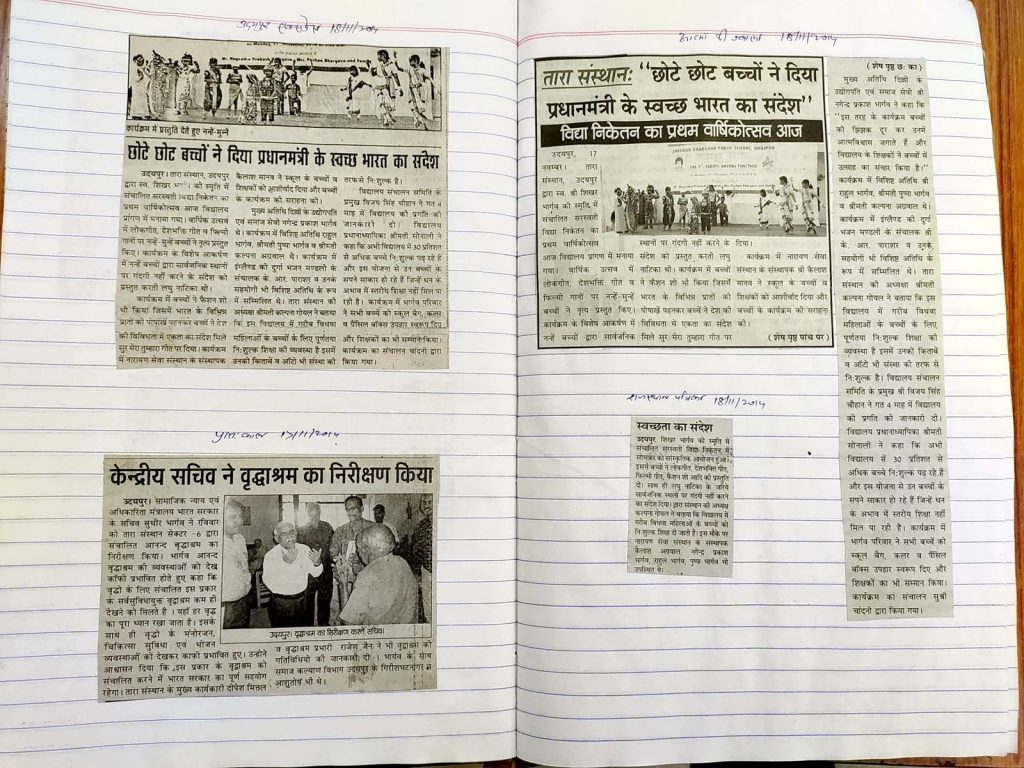 उदयपुर एक्सप्रेस 18/11/2014
Mr. Nagendra Prakash Bhargava Mrs. Pushpa Bhargava and Family
कार्यक्रम में प्रस्तुति देते हुए नन्हे-मुन्ने
छोटे छोट बच्चों ने दिया प्रधानमंत्री के स्वच्छ भारत का संदेश
उदयपुर। तारा संस्थान, उदयपुर
द्वारा स्व. शिखर भार्गव की स्मृति में
संचालित सरस्वती विद्या निकेतन का
प्रथम वार्षिकोत्सव आज विद्यालय
प्रांगण में मनाया गया। वार्षिक उत्सव
में लोकगीत, देशभक्ति गीत व फिल्मी
गानों पर नन्हें-मुन्नें बच्चों ने नृत्य प्रस्तुत
किए। कार्यक्रम के विशेष आकर्षण में
नन्हें बच्चों द्वारा सार्वजनिक स्थानों
पर गंदगी नहीं करने के संदेश को
प्रस्तुत करती लघु नाटिका थी।
कार्यक्रम में बच्चों ने फैशन शो
भी किया जिसमें भारत के विभिन्न
प्रातों की पोषाखें पहनकर बच्चों ने देश
की विविधता में एकता का संदेश मिले
सुर मेरा तुम्हारा गीत पर दिया। कार्यक्रम
में नारायण सेवा संस्थान के संस्थापक
कैलाश मानव ने स्कूल के बच्चों व
शिक्षकों को आर्शीवाद दिया और बच्चों
के कार्यक्रम की सराहना की।
मुख्य अतिथि दिल्ली के उद्योगपति
एवं समाज सेवी नगेन्द्र प्रकाश भार्गव
थे। कार्यक्रम में विशिष्ठ अतिथि राहुल
भार्गव, श्रीमती पुष्पा भार्गव व श्रीमती
कल्पना अग्रवाल थे। कार्यक्रम में
इंग्लैण्ड की दुर्गा भजन मण्डली के
संचालक के. आर. पाराशर व उनके
सहयोगी भी विशिष्ट अतिथि के रूप
में सम्मिलित थे। तारा संस्थान की
अध्यक्षा श्रीमती कल्पना गोयल ने बताया
कि इस विद्यालय में गरीब विधवा
महिलाओं के बच्चों के लिए पूर्णतया
नि:शुल्क शिक्षा की व्यवस्था है इसमें
उनको किताबें व ऑटो भी संस्था की
तरफ से नि:शुल्क है।
विद्यालय संचालन समिति के
प्रमुख श्री विजय सिंह चौहान ने गत 4
माह में विद्यालय की प्रगति की
जानकारी दी। विद्यालय
प्रधानाध्यापिका श्रीमती सोनालो ने
कहा कि अभी विद्यालय में 30 प्रतिशत
से अधिक बच्चे नि:शुल्क पढ़ रहे हैं
और इस योजना से उन बच्चों के
सपने साकार हो रहे हैं जिन्हें धन के
अभाव में स्तरीय शिक्षा नहीं मिल पा
रही है। कार्यक्रम में भार्गव परिवार
ने सभी बच्चों को स्कूल बैग, कलर
व पैंसिल बॉक्स उपहार स्वरूप दिए
और शिक्षकों का भी सम्मान किया।
कार्यक्रम का संचालन चांदनी द्वारा
किया गया।
प्रातःकाल 17/11/2014
केन्द्रीय सचिव ने वृद्धाश्रम का निरीक्षण किया
उदयपुर। सामाजिक न्याय एवं
अधिकारिता मंत्रालय भारत सरकार
के सचिव सुधीर भार्गव ने रविवार
को तारा संस्थान सेक्टर -6 द्वारा
संचालित आनन्द वृद्धाश्रम का
निरीक्षण किया। भार्गव आनन्द
वृद्धाश्रम की व्यवस्थाओं को देख
काँफी प्रभावित होते हुए कहा कि
वृद्धों के लिए संचालित इस प्रकार
के सर्वसुविधायुक्त वृद्धाश्रम कम ही
देखने को मिलते है । यहाँ हर वृद्ध
का पूरा ध्यान रखा जाता है। इसके
साथ ही वृद्धो के मनोरजंन,
चिकित्सा सुविधा एवं भोजन
व्यवस्थाओं को देखकर काफी प्रभावित हुए। उन्होंने
आश्वासन दिया कि ,इस प्रकार के वृद्धाश्रम को
संचालित करने में भारत सरकार का पूर्ण सहयोग
रहेगा। तारा संस्थान के मुख्य कार्यकारी दीपेश मित्तल
उदयपुर। वृद्धाश्रम का निरीक्षण करते सचिव।
व वृद्धाश्रम प्रभारी राजेश जैन ने भी वृद्धाश्रम की
गतिविधियों की जानकारी दी । भार्गव के साथ
समाज कल्याण विभाग उदयपुर के गिरीशभटनागर व
आशुतोष भी थे।
18/11/2014
तारा संस्थान: "छोटे छोट बच्चों ने दिया
प्रधानमंत्री के स्वच्छ भारत का संदेश"
विद्या निकेतन का प्रथम वार्षिकोत्सव आज
SHIKHAR BHARGAVA PUBLIC SCHOOL, UDAIPUR
उदयपुर, 17
नवम्बर। तारा
संस्थान, उदयपुर
द्वारा स्व. श्री शिखर
भार्गव की स्मृति, में
संचालित सरस्वती
विद्या निकेतन का
प्रथम वार्षिकोत्सव
आज विद्यालय प्रांगण में मनाया
गया। वार्षिक उत्सव में
लोकगीत, देशभक्ति गीत व
फिल्मी गानों पर नन्हें-मुन्नें
बच्चों ने नृत्य प्रस्तुत किए।
कार्यक्रम के विशेष आकर्षण में
नन्हें बच्चों द्वारा सार्वजनिक
स्थानों पर गंदगी नहीं करने के
संदेश को प्रस्तुत करती लघु
नाटिका थी। कार्यक्रम में बच्चों
ने फैशन शो भी किया जिसमें
भारत के विभिन्न प्रातों की
पोषाखें पहनकर बच्चों ने देश की
विविधता में एकता का संदेश
मिले सुर मेरा तुम्हारा गीत पर
दिया।
कार्यक्रम में नारायण सेवा
संस्थान के संस्थापक श्री कैलाश
मानव ने स्कूल के बच्चों व
शिक्षकों को आर्शीवाद दिया और
बच्चों के कार्यक्रम की सराहना
की।
(शेष पृष्ठ पांच पर)
(शेष पृष्ठ छ: का)
मुख्य अतिथि दिल्ली के
उद्योगपति एवं समाज सेवी श्री
नगेन्द्र प्रकाश भार्गव ने कहा कि
"इस तरह के कार्यक्रम बच्चों
की झिझक दूर कर उनमें
आत्मविश्वास जगाते हैं और
विद्यालय के शिक्षकों ने बच्चों में
उत्साह का संचार किया है।"
कार्यक्रम में विशिष्ट अतिथि श्री
राहुल भार्गव, श्रीमती पुष्पा भार्गव
व श्रीमती कल्पना अग्रवाल थे।
कार्यक्रम में इंग्लैण्ड की दुर्गा
भजन मण्डली के संचालक श्री
के. आर. पाराशर व उनके
सहयोगी भी विशिष्ट अतिथि के
रूप में सम्मिलित थे। तारा
संस्थान की अध्यक्षा श्रीमती
कल्पना गोयल ने बताया कि इस
विद्यालय में गरीब विधवा
महिलाओं के बच्चों के लिए
पूर्णतया नि:शुल्क शिक्षा की
व्यवस्था है इसमें उनको किताबें
व ऑटो भी संस्था की तरफ से
नि:शुल्क है। विद्यालय संचालन
समिति के प्रमुख श्री विजय सिंह
चौहान ने गत 4 माह में विद्यालय
की प्रगति की जानकारी दी।
विद्यालय प्रधानाध्यापिका श्रीमती
सोनालो ने कहा कि अभी
विद्यालय में 30 प्रतिशत से
अधिक बच्चे नि:शुल्क पढ़ रहे हैं
और इस योजना से उन बच्चों के
सपने साकार हो रहे हैं जिन्हें धन
के अभाव में स्तरीय शिक्षा नहीं
मिल पा रही है। कार्यक्रम में
भार्गव परिवार ने सभी बच्चों को
स्कूल बैग, कलर व पैंसिल
बॉक्स उपहार स्वरूप दिए और
शिक्षकों का भी सम्मान किया।
कार्यक्रम का संचालन सुश्री
चांदनी द्वारा किया गया।
राजस्थान पत्रिका 18/11/2014
स्वच्छता का संदेश
उदयपुर. शिखर भार्गव की स्मृति में
संचालित सरस्वती विद्या निकेतन में
सोमवार को सांस्कृतिक आयोजन हुआ।
इसमें बच्चों ने लोकगीत, देशभक्ति गीत,
फिल्मी गीत, फैशन शो आदि की प्रस्तुति
दी। साथ ही लघु नाटिका के जरिये
सार्वजनिक स्थलों पर गंदगी नहीं करने
का संदेश दिया। तारा संस्थान की अध्यक्ष
कल्पना गोयल ने बताया कि विद्यालय में
गरीब विधवा महिलाओं के बच्चों को
नि:शुल्क शिक्षा दी जाती है। इस मौके पर
नारायण सेवा संस्थान के संस्थापक
कैलाश अग्रवाल, नगेन्द्र प्रकाश
भार्गव, राहुल भार्गव, पुष्पा भार्गव भी
उपस्थित थे।